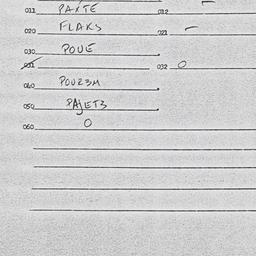 011 PAXTE 012 –
020 FLAKS 021 –
030 POUE
031 032 O
040 POUZЗM
050 PAJETЗ
060 O